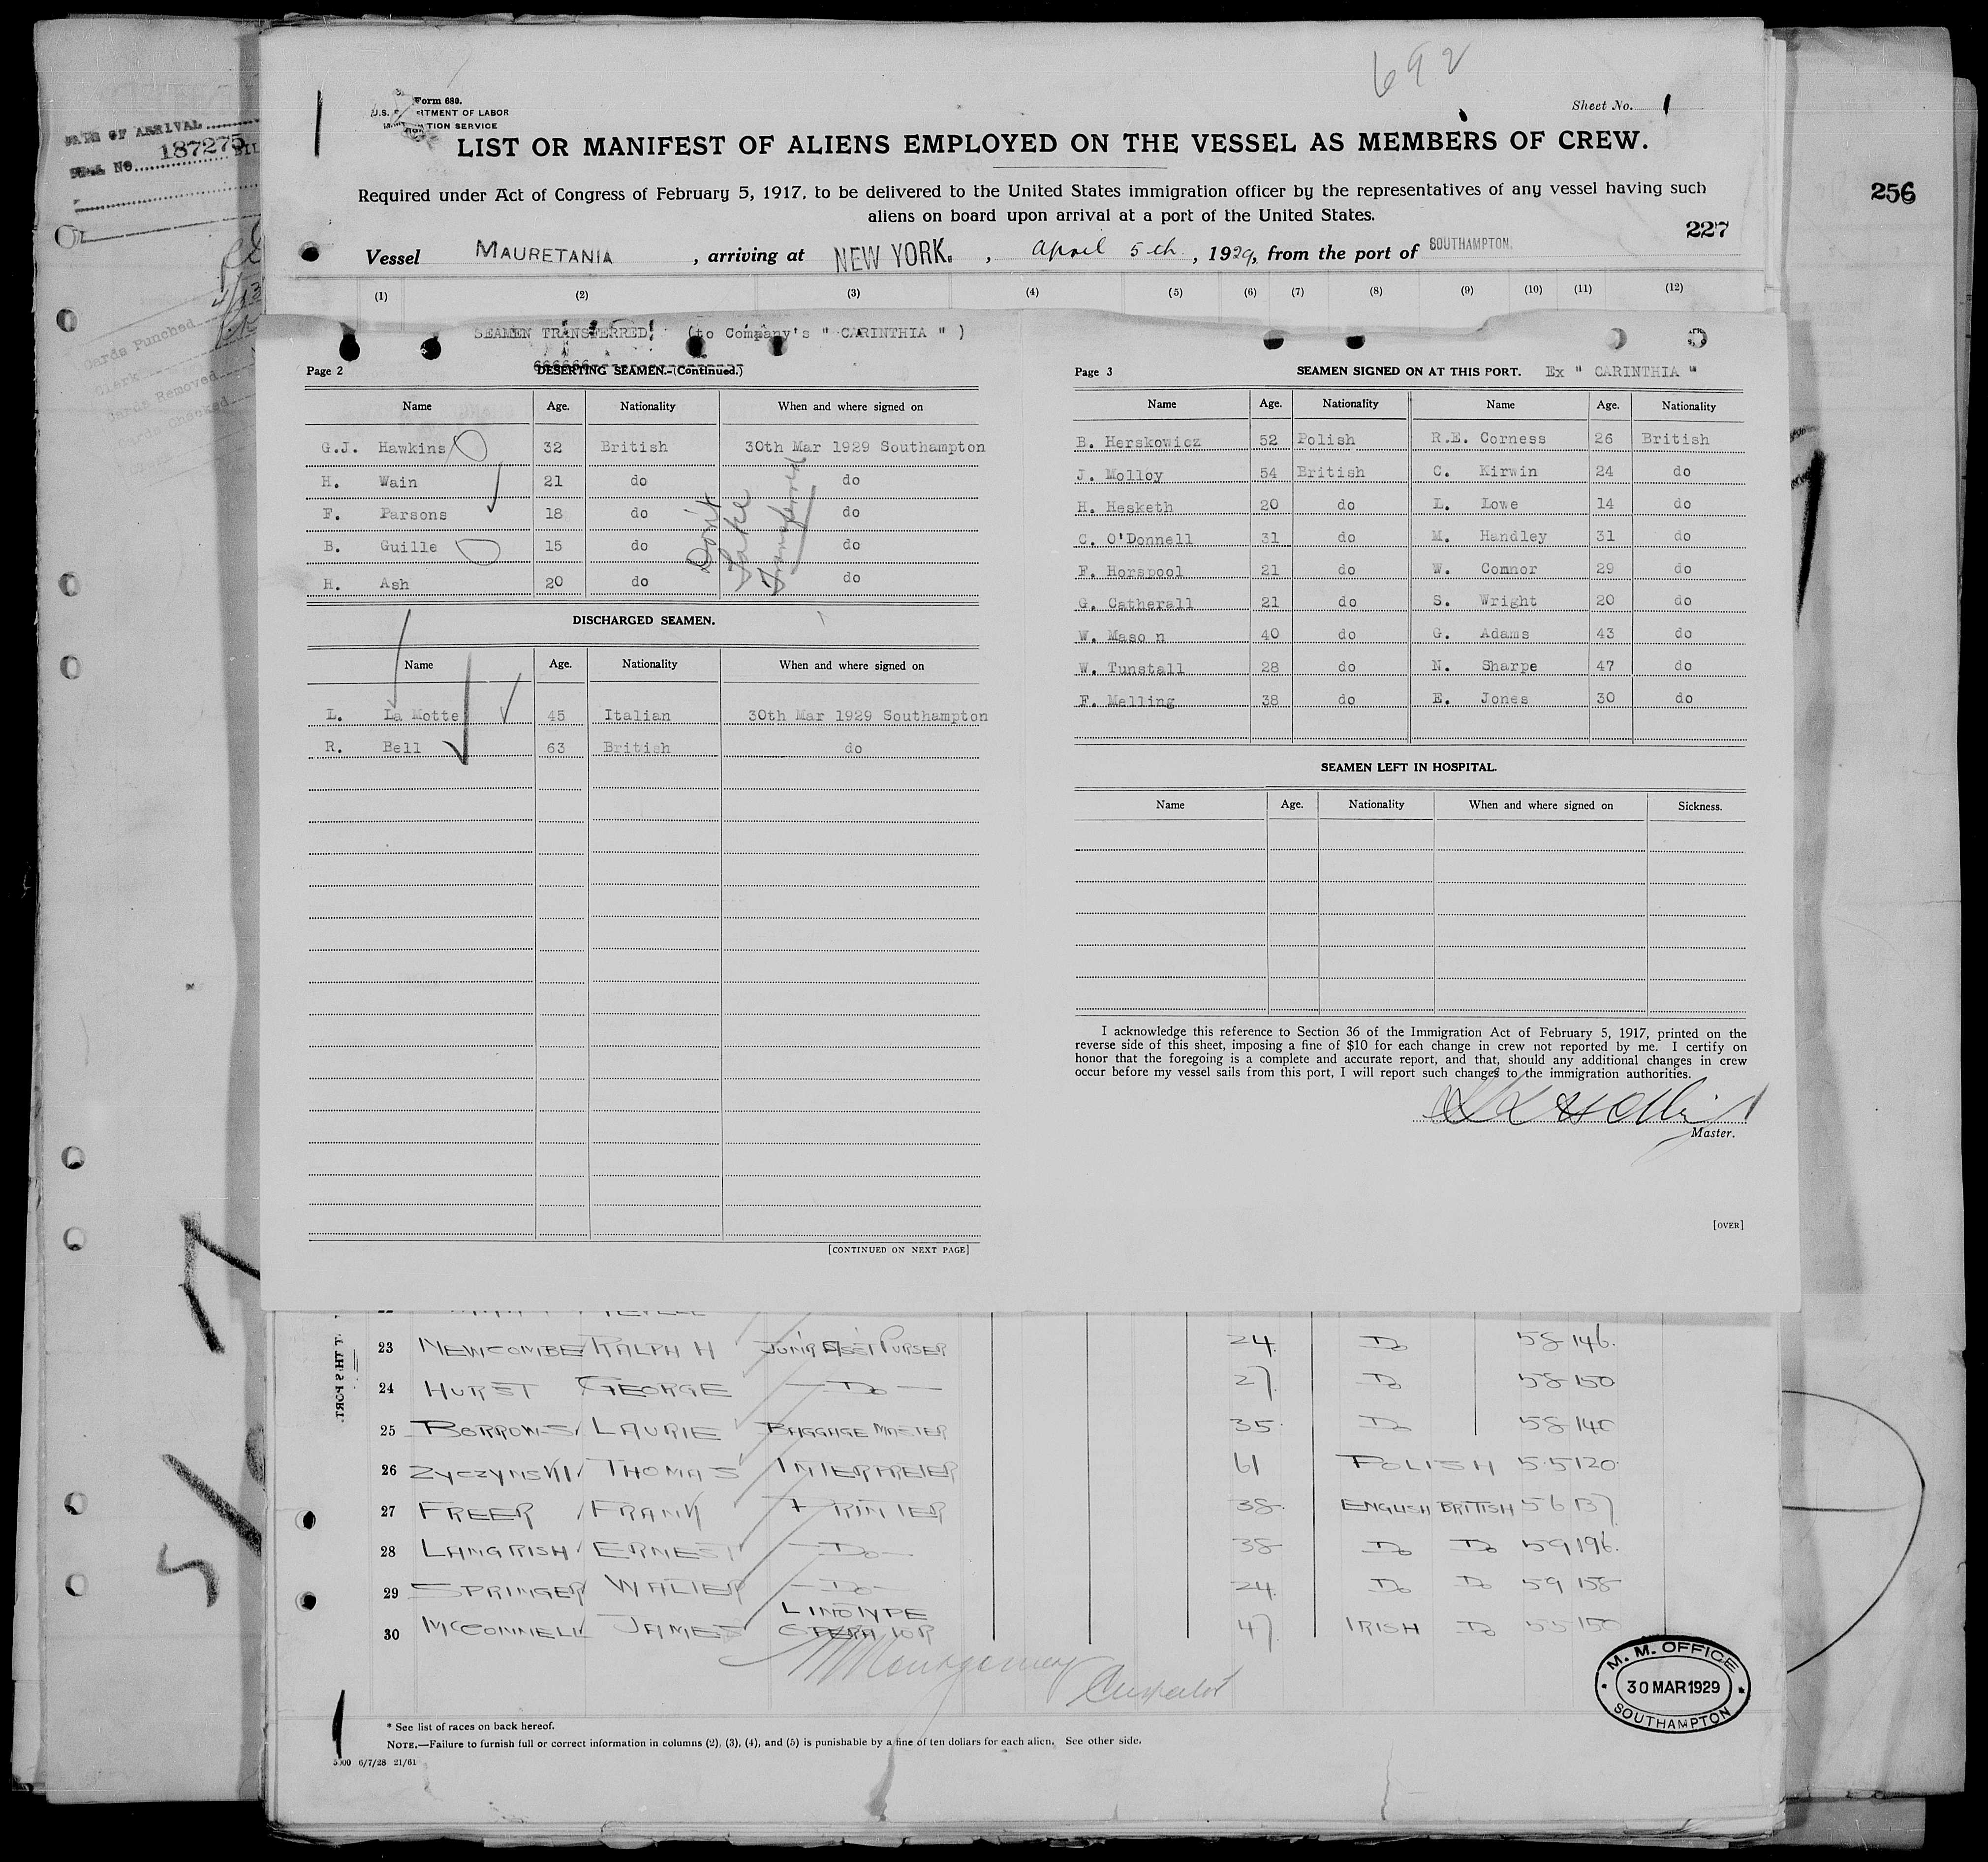 DATE OF ARRIVAL
187275
Cards Punched
Clerk
Cards Removed
Cards Checked
256
692
Form 680.
Sheet No. 1
LIST OR MANIFEST OF ALIENS EMPLOYED ON THE VESSEL AS MEMBERS OF CREW.
Required under Act of Congress of February 5, 1917, to be delivered to the United States immigration officer by the representatives of any vessel having such
aliens on board upon arrival at a port of the United States.
227
Vessel MAURETANIA, arriving at NEW YORK., April 5th, 1929, from the port of SOUTHAMPTON.
(1) (2) (3) (4) (5) (6) (7) (8) (9) (10) (11) (12)
SEAMEN TRANSFERRED. (to Company's " CARINTHIA " )
Page 2 DESERTING SEAMEN.-(Continued.)
Name Age. Nationality When and where signed on
G.J. Hawkins 32 British 30th Mar 1929 Southampton
H. Wain 21 do do
F. Parsons 18 do do
B. Guille 15 do do
H. Ash 20 do do
Don't
Take
Transferred
DISCHARGED SEAMEN.
Name Age. Nationality When and where signed on
L. La Motte 45 Italian 30th Mar 1929 Southampton
R. Bell 63 British do
[CONTINUED ON NEXT PAGE]
Page 3 SEAMEN SIGNED ON AT THIS PORT. Ex " CARINTHIA "
Name Age. Nationality Name Age. Nationality
B. Herskowicz 52 Polish R.E. Corness 26 British
J. Molloy 54 British C. Kirwin 24 do
H. Hesketh 20 do L. Lowe 14 do
C. O'Donnell 31 do M. Handley 31 do
F. Horspool 21 do W. Connor 29 do
G. Catherall 21 do S. Wright 20 do
W. Maso n 40 do G. Adams 43 do
W. Tunstall 28 do N. Sharpe 47 do
F. Melling 38 do E. Jones 30 do
SEAMEN LEFT IN HOSPITAL.
Name Age. Nationality When and where signed on Sickness.
I acknowledge this reference to Section 36 of the Immigration Act of February 5, 1917, printed on the
reverse side of this sheet, imposing a fine of $10 for each change in crew not reported by me. I certify on
honor that the foregoing is a complete and accurate report, and that, should any additional changes in crew
occur before my vessel sails from this port, I will report such changes to the immigration authorities.
Master.
[OVER]
23 NEWCOMBE RALPH H JUNR ASST PURSER 24 Do 58 146.
24 HURST GEORGE Do 27 Do 58 150
25 BORROWS LAURIE BAGGAGE MASTER 35 Do 58 140
26 ZYCZYNSKI THOMAS INTERPRETER 61 POLISH 5.5 120
27 FREER FRANK PRINTER 38 ENGLISH BRITISH 56 137
28 LANGRISH ERNEST Do 38 Do Do 59 196.
29 SPRINGER WALTER Do 24 Do Do 59 158
30 MCCONNELL JAMES LINOTYPE OPERATOR 47 IRISH Do 55 150
M. M. OFFICE
30 MAR 1929
SOUTHAMPTON
* See list of races on back hereof.
NOTE.—Failure to furnish full or correct information in columns (2), (3), (4), and (5) is punishable by a fine of ten dollars for each alien. See other side.
6/7/28 21/61